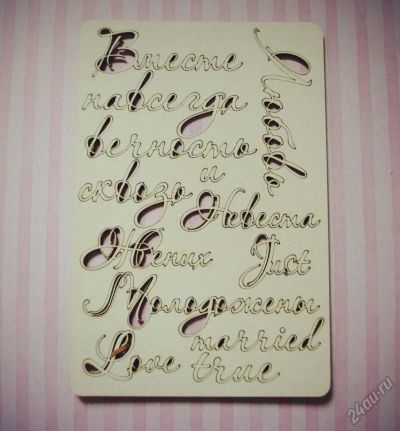 Вместе
навсегда
вечность
и
сквозь
Любовь
Невеста
Жених Just
Молодожены
married
Love true
24au.ru